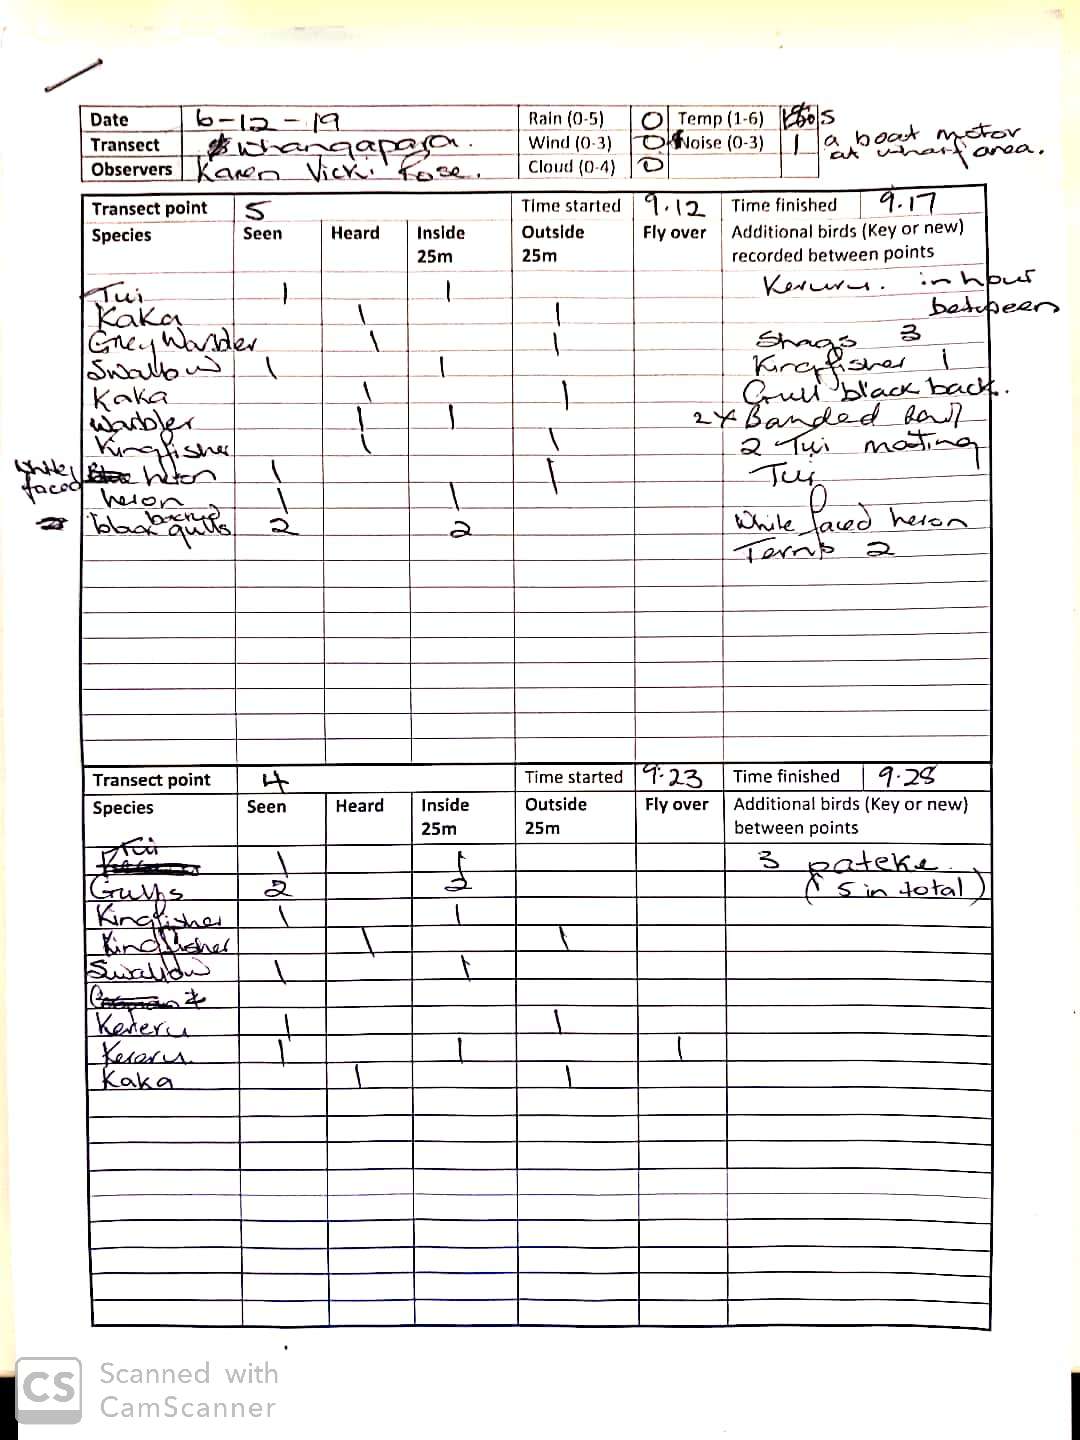 Date 6-12-19 Rain (0-5) 0 Temp (1-6) 5
Transect whangapara. Wind (0-3) 0 Noise (0-3) 1 a boat motor
at wharf area.
Observers Karen Vicki Rose. Cloud (0-4) 0
Transect point 5 Time started 9.12 Time finished 9.17
Species Seen Heard Inside 25m Outside 25m Fly over Additional birds (Key or new) recorded between points
Tui 1 1 Kereru. in hour
between
Kaka 1 1
Grey Warbler 1 1 Shags 3
Swallow 1 1 Kingfisher 1
Kaka 1 1 Gull black back.
Warbler 1 1 2x Banded Rail
Kingfisher 1 1 2 Tui mating
White faced heron 1 1 Tui
heron 1 1
black backed gulls 2 2 White faced heron
Terns 2
Transect point 4 Time started 9.23 Time finished 9.28
Species Seen Heard Inside 25m Outside 25m Fly over Additional birds (Key or new) between points
Tui 1 1 3 pateke.
Gulls 2 2 (5 in total)
Kingfisher 1 1
Kingfisher 1 1
Swallow 1 1
Kereru 1 1
Kereru 1 1 1
Kaka 1 1
CS Scanned with
CamScanner